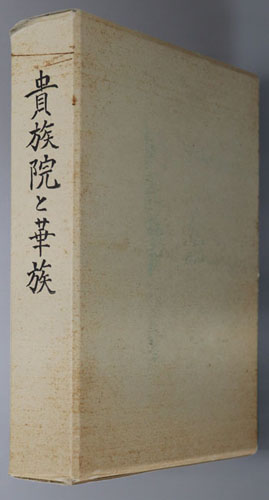 貴族院と華族